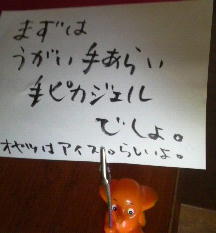 まずは
うがい手あらい
手ピカジェル
でしょ。
オヤツはアイス。らしいよ。